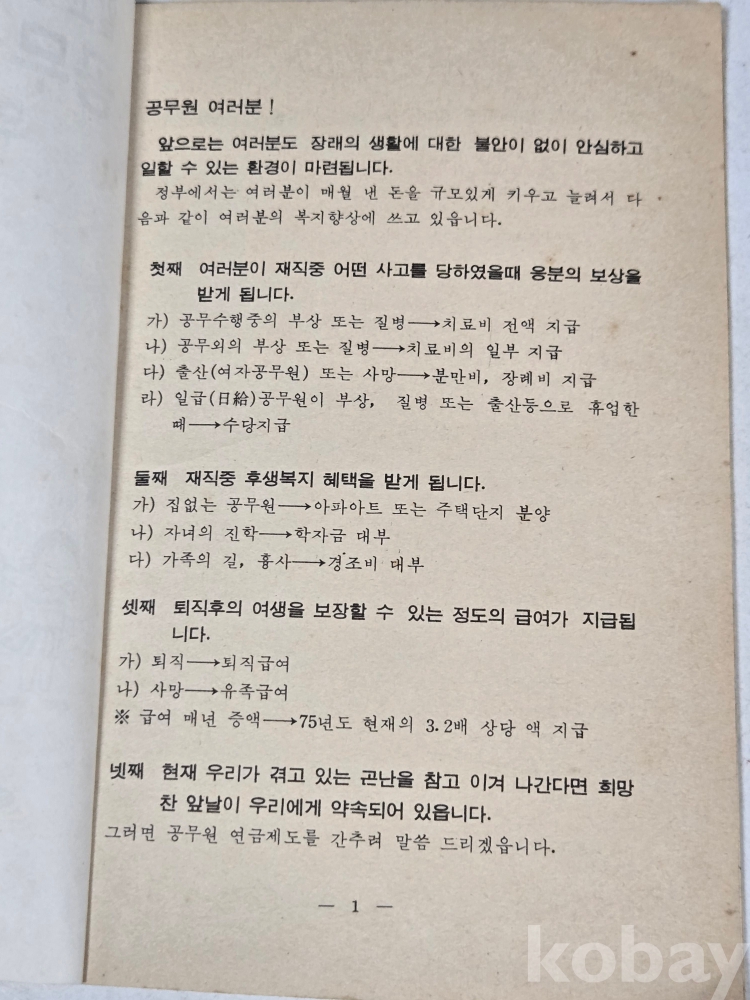 공무원 여러분!
앞으로는 여러분도 장래의 생활에 대한 불안이 없이 안심하고
일할 수 있는 환경이 마련됩니다.
정부에서는 여러분이 매월 낸 돈을 규모있게 키우고 늘려서 다
음과 같이 여러분의 복지향상에 쓰고 있읍니다.
첫째 여러분이 재직중 어떤 사고를 당하였을때 응분의 보상을
받게 됩니다.
가) 공무수행중의 부상 또는 질병→치료비 전액 지급
나) 공무외의 부상 또는 질병→치료비의 일부 지급
다) 출산(여자공무원) 또는 사망→분만비, 장례비 지급
라) 일급(日給)공무원이 부상, 질병 또는 출산등으로 휴업한
때→수당지급
둘째 재직중 후생복지 혜택을 받게 됩니다.
가) 집없는 공무원→아파아트 또는 주택단지 분양
나) 자녀의 진학→학자금 대부
다) 가족의 길, 흉사→경조비 대부
셋째 퇴직후의 여생을 보장할 수 있는 정도의 급여가 지급됩
니다.
가) 퇴직→퇴직급여
나) 사망→유족급여
※ 급여 매년 증액→75년도 현재의 3.2배 상당 액 지급
넷째 현재 우리가 겪고 있는 곤난을 참고 이겨 나간다면 희망
찬 앞날이 우리에게 약속되어 있읍니다.
그러면 공무원 연금제도를 간추려 말씀 드리겠읍니다.
— 1 —
kobay